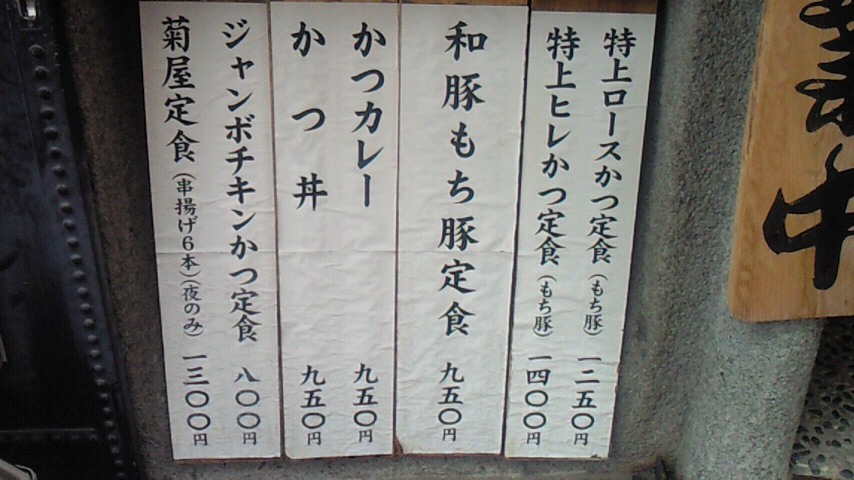 特上ロースかつ定食(もち豚)一二五〇円
特上ヒレかつ定食(もち豚)一四〇〇円
和豚もち豚定食 九五〇円
かつカレー 九五〇円
かつ丼 九五〇円
ジャンボチキンかつ定食 八〇〇円
菊屋定食(串揚げ6本)(夜のみ)一三〇〇円
中